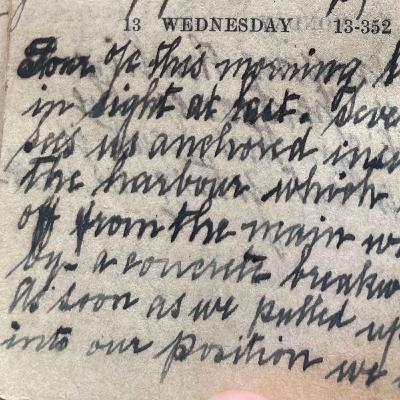 13 WEDNESDAY 13-352
Four o/c this morning
in sight at last. Seve
sees us anchored insi
the harbour which
off from the main w
by a concrete breakw
As soon as we pulled up
into our position we